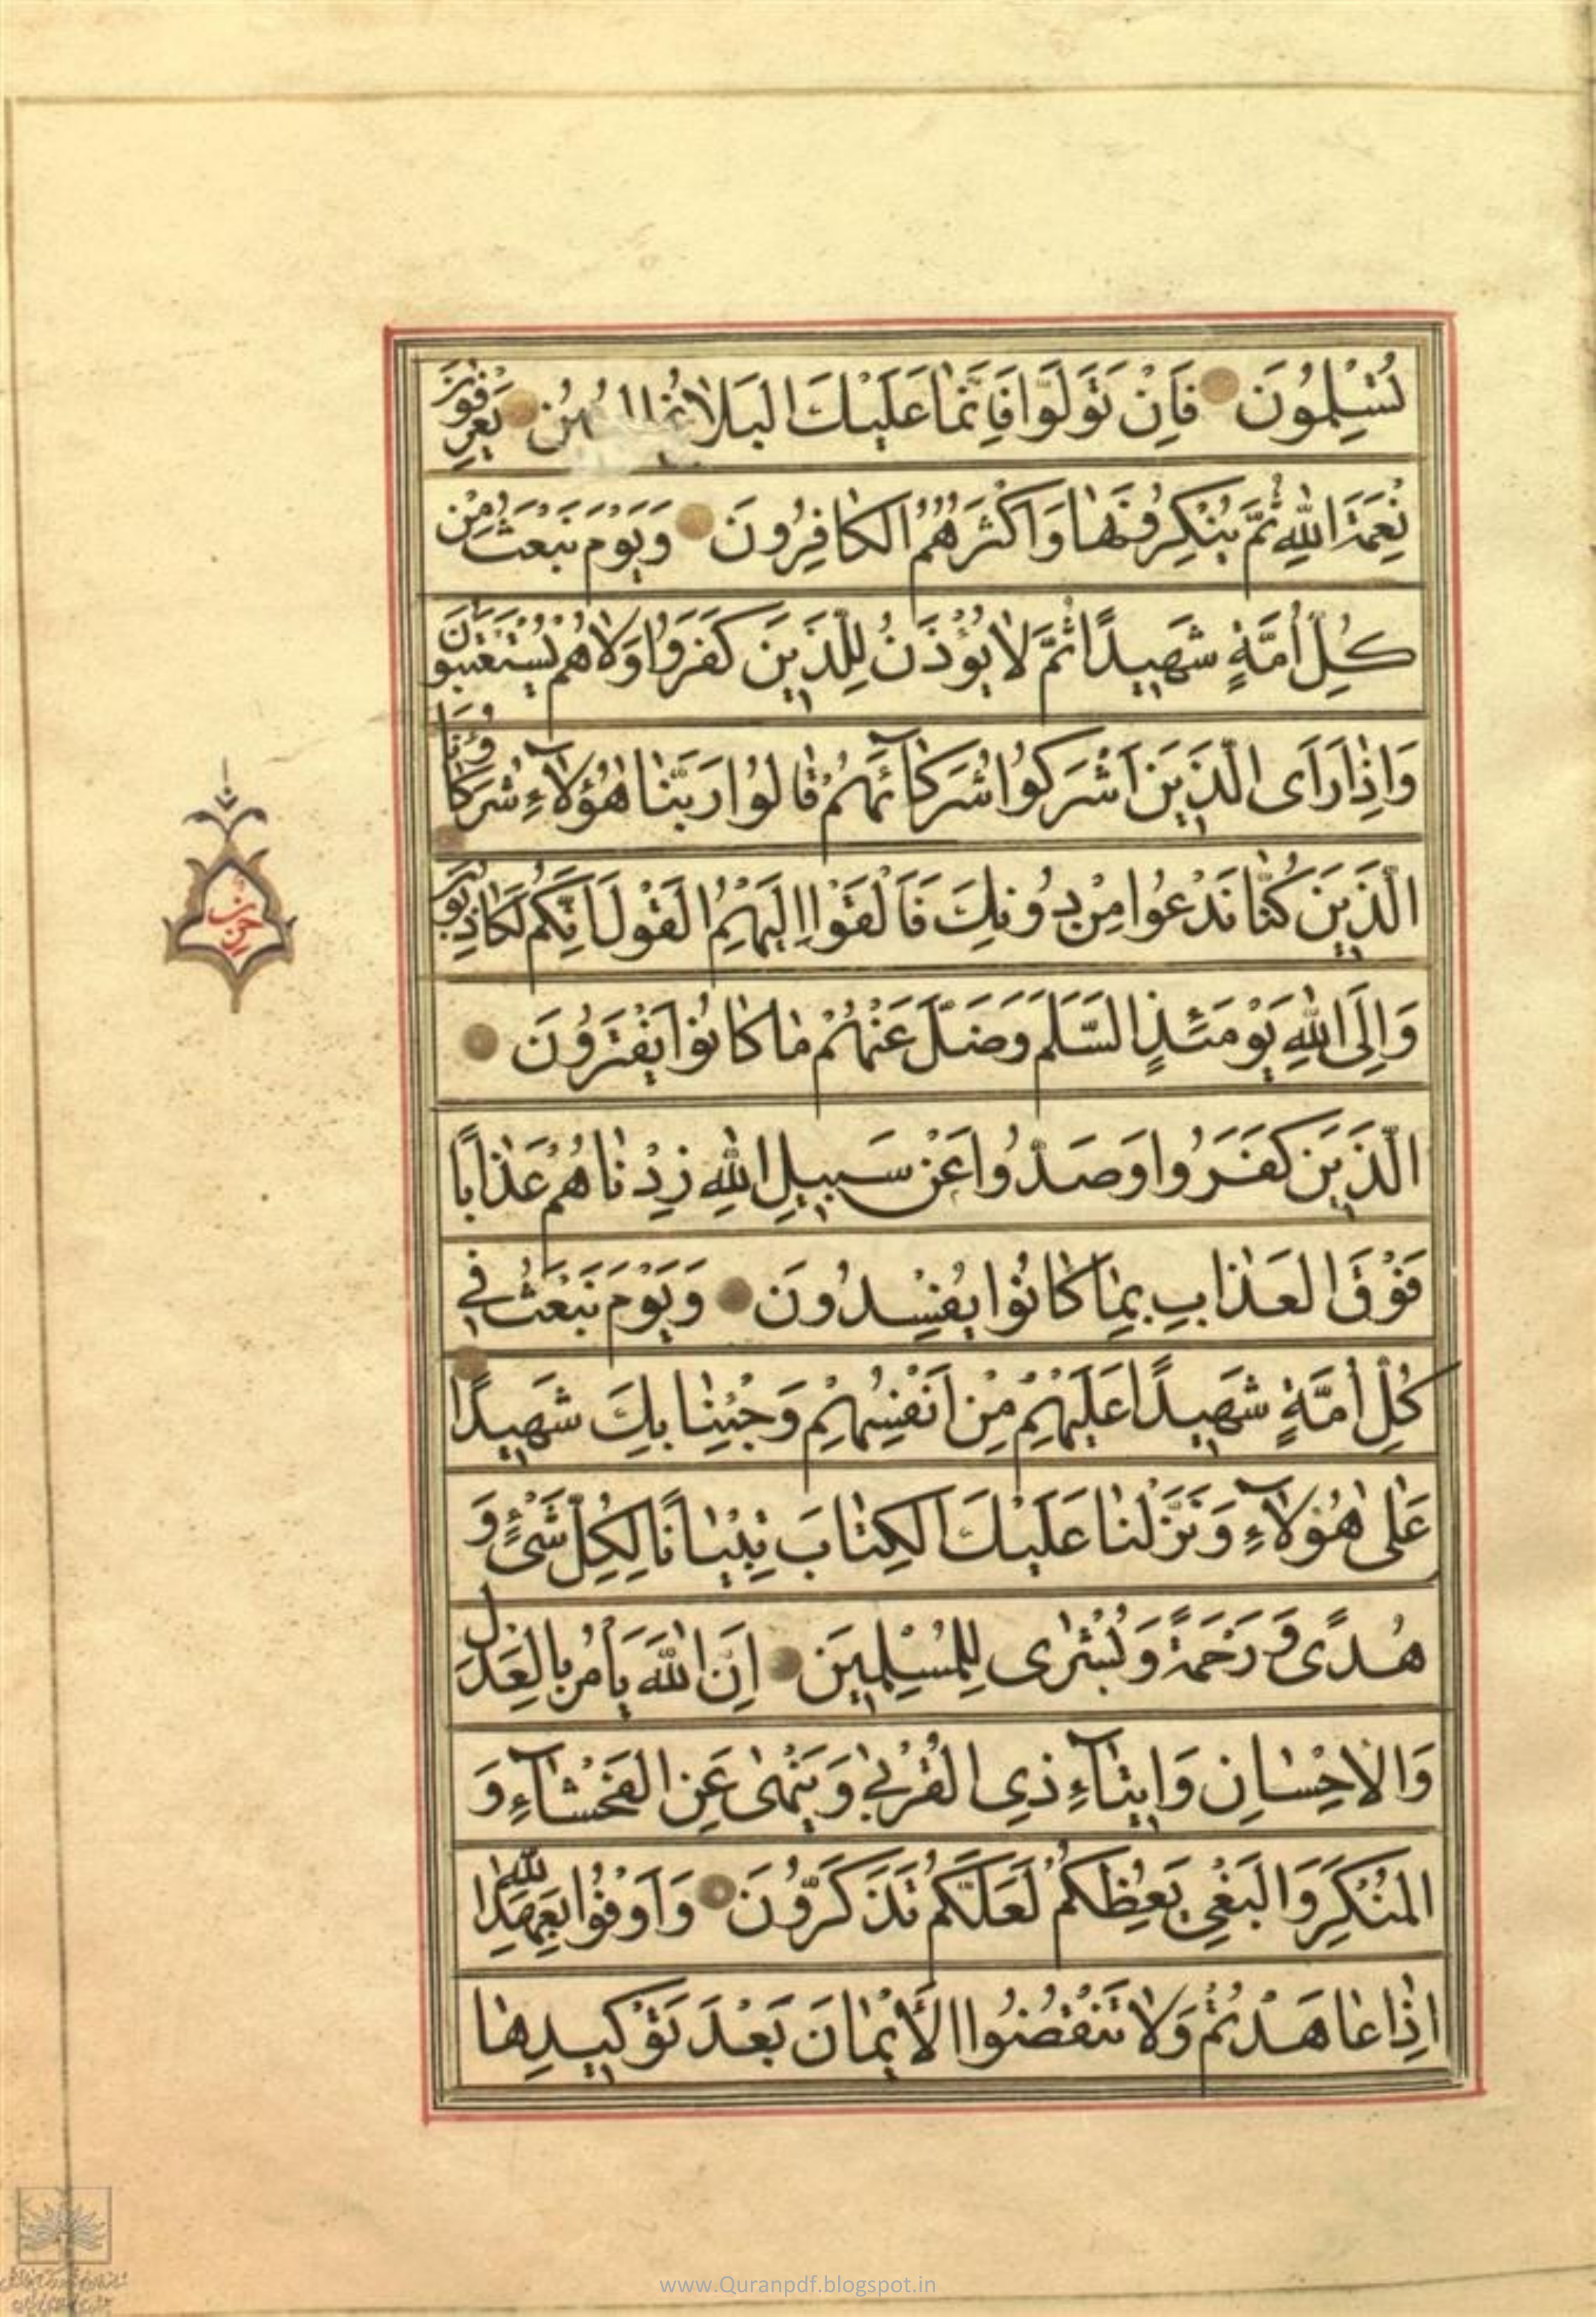 تُسْلِمُونَ فَاِنْ تَوَلَّوْا فَاِنَّمٰا عَلَيْكَ الْبَلٰاغُ يَعْرِفُونَ
نِعْمَتَ اللّٰهِ ثُمَّ يُنْكِرُونَهٰا وَاَكْثَرُهُمُ الْكٰافِرُونَ وَيَوْمَ نَبْعَثُ مِنْ
كُلِّ اُمَّةٍ شَهِيدًا ثُمَّ لٰا يُؤْذَنُ لِلَّذِينَ كَفَرُوا وَلٰا هُمْ يُسْتَعْتَبُونَ
وَاِذٰا رَاَى الَّذِينَ اَشْرَكُوا شُرَكٰآئَهُمْ قٰالُوا رَبَّنٰا هٰؤُلٰآءِ شُرَكٰاؤُنَا
الَّذِينَ كُنّٰا نَدْعُوا مِنْ دُونِكَ فَاَلْقَوْا اِلَيْهِمُ الْقَوْلَ اِنَّكُمْ لَكٰاذِبُونَ
وَاِلَى اللّٰهِ يَوْمَئِذٍ السَّلَمَ وَضَلَّ عَنْهُمْ مٰا كٰانُوا يَفْتَرُونَ
الَّذِينَ كَفَرُوا وَصَدُّوا عَنْ سَبِيلِ اللّٰهِ زِدْنٰاهُمْ عَذٰابًا
فَوْقَ الْعَذٰابِ بِمٰا كٰانُوا يُفْسِدُونَ وَيَوْمَ نَبْعَثُ فِي
كُلِّ اُمَّةٍ شَهِيدًا عَلَيْهِمْ مِنْ اَنْفُسِهِمْ وَجِئْنٰا بِكَ شَهِيدًا
عَلٰى هٰؤُلٰآءِ وَنَزَّلْنٰا عَلَيْكَ الْكِتٰابَ تِبْيٰانًا لِكُلِّ شَيْءٍ وَ
هُدًى وَرَحْمَةً وَبُشْرٰى لِلْمُسْلِمِينَ اِنَّ اللّٰهَ يَأْمُرُ بِالْعَدْلِ
وَالْاِحْسٰانِ وَاِيتٰآءِ ذِي الْقُرْبٰى وَيَنْهٰى عَنِ الْفَحْشٰآءِ وَ
الْمُنْكَرِ وَالْبَغْيِ يَعِظُكُمْ لَعَلَّكُمْ تَذَكَّرُونَ وَاَوْفُوا بِعَهْدِ اللّٰهِ
اِذٰا عٰاهَدْتُمْ وَلٰا تَنْقُضُوا الْاَيْمٰانَ بَعْدَ تَوْكِيدِهٰا
حزب
www.Quranpdf.blogspot.in